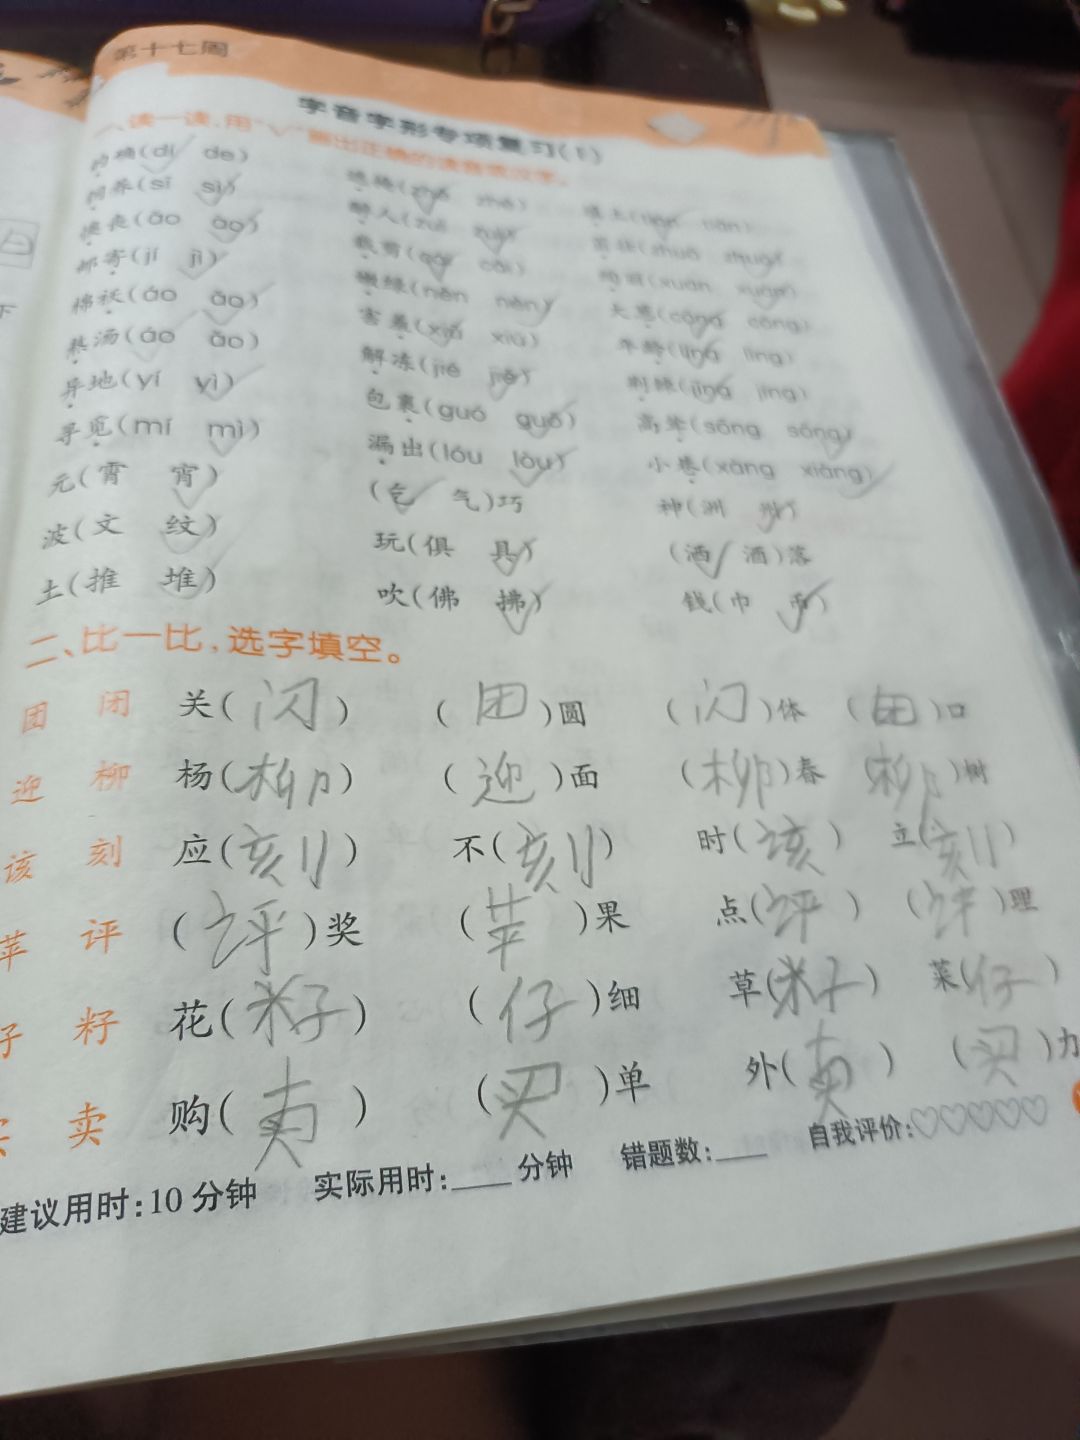 第十七周
字音字形专项复习(1)
一、读一读,用“√”画出正确的读音或汉字。
的确(dí de)
饲养(sī sì)
邮寄(jí jì) 裁剪
棉袄(áo ǎo) 嫩绿(nèn nèn)
熬汤(áo ǎo) 害羞(xiū xiù) 年龄(líng líng)
异地(yí yì) 解冻(jié jiě)
寻觅(mí mì) 包裹(guó guǒ) 高耸(sōng sǒng)
元(霄 宵) 漏出(lóu lòu) 小巷(xàng xiàng)
波(文 纹) (乞 气)巧 神(洲 州)
土(推 堆) 玩(俱 具) (洒 酒)落
吹(佛 拂) 钱(巾 币)
二、比一比,选字填空。
团 闭 关(闪) (团)圆 (闪)体 (团)口
迎 柳 杨(柳) (迎)面 (柳)春 (柳)树
该 刻 应(刻) 不(刻) 时(该) 立(刻)
苹 评 (评)奖 (苹)果 点(评) (评)理
籽 花(籽) (仔)细 草(籽) 菜(仔)
卖 购(卖) (买)单 外(卖) (买)力
建议用时:10分钟 实际用时:____分钟 错题数:____ 自我评价:♡♡♡♡♡